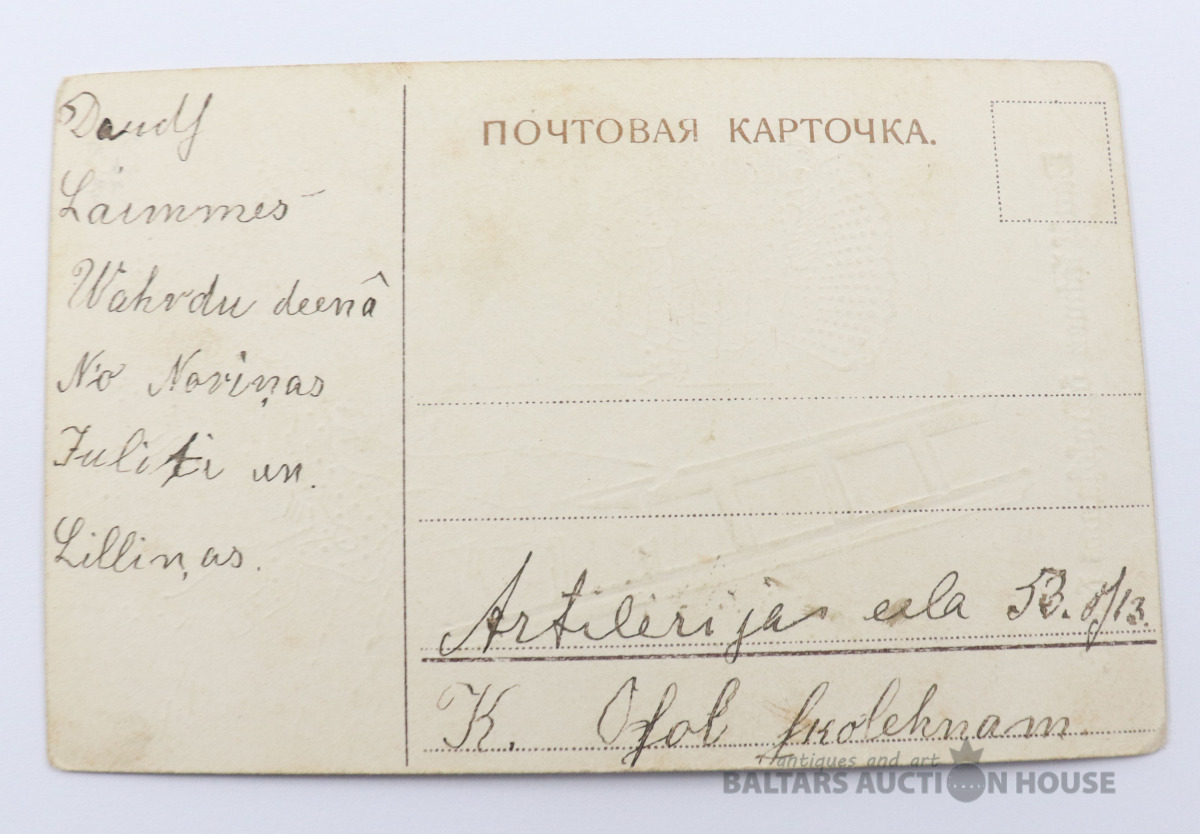 Daudſ
Laimmes
Wahrdu deenâ
No Noriņas
Juliti un.
Lilliņas.
ПОЧТОВАЯ КАРТОЧКА.
Artilerijas eela 53.
K. Oſol ſkolehnam.
antiques and art
BALTARS AUCTION HOUSE